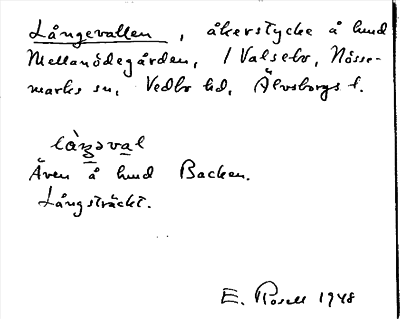 Långevallen, åkerstycke å hmd
Mellanödegården, 1 Valsebo, Nösse-
marks sn, Vedbo hd, Älvsborgs l.
làŋəval
Även å hmd Backen.
Långsträckt.
E. Rosell 1948